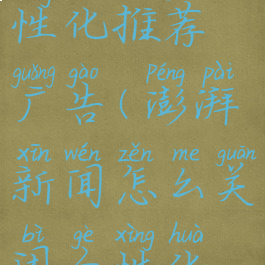 性化推荐
guǎng gào péng pài
广告(澎湃
xīn wén zěn me guān
新闻怎么关
bì gè xìng huà
闭个性化